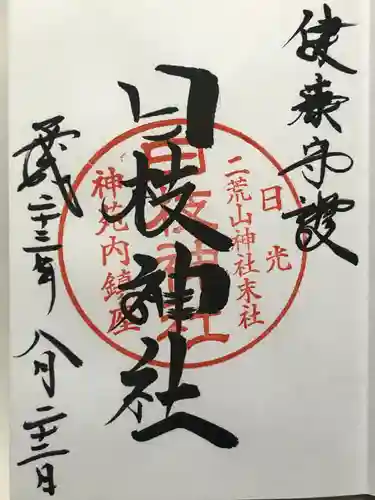 健康守護
日枝神社
日光
二荒山神社末社
日枝神社
神苑内鎮座
平成二十三年 八月二十三日